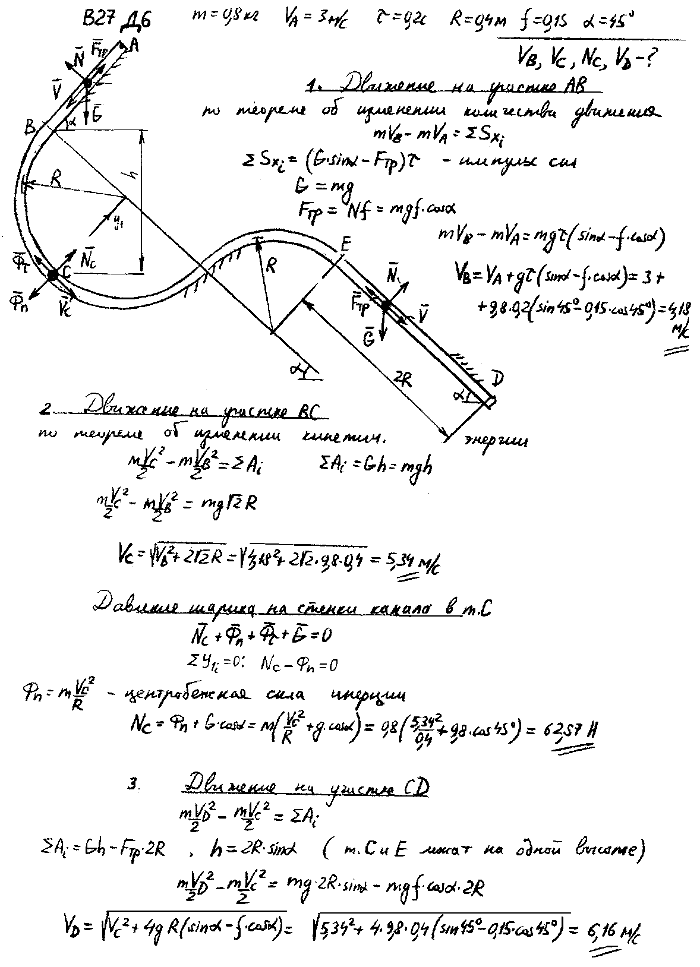 В27 Д6 m=0,8 кг V_A=3 м/с τ=0,2с R=0,4м f=0,15 α=45°
V_B, V_C, N_C, V_D - ?
1. Движение на участке AB
по теореме об изменении количества движения
mV_B - mV_A = ΣSx_i
ΣSx_i = (G·sinα - F_тр)τ - импульс сил
G = mg
F_тр = Nf = mgf·cosα
mV_B - mV_A = mgτ(sinα - f·cosα)
V_B = V_A + gτ(sinα - f·cosα) = 3 +
+ 9,8·0,2(sin45° - 0,15·cos45°) = 4,18
м/с
A
N̄ F̄_тр
V̄
Ḡ
B α
h
R
y_1
Φ̄_τ N̄_C
C
Φ̄_n V̄_C
R
E
N̄
F̄_тр V̄
Ḡ
2R
α
α D
2. Движение на участке BC
по теореме об изменении кинетич. энергии
mV_C²/2 - mV_B²/2 = ΣA_i ΣA_i = Gh = mgh
mV_C²/2 - mV_B²/2 = mg√2R
V_C = √(V_B² + 2√2R) = √(4,18² + 2√2·9,8·0,4) = 5,34 м/с
Давление шарика на стенки канала в т.С
N̄_C + Φ̄_n + Φ̄_τ + Ḡ = 0
ΣY_1i = 0: N_C - Φ_n = 0
Φ_n = mV_C²/R - центробежная сила инерции
N_C = Φ_n + G·cosα = m(V_C²/R + g·cosα) = 0,8(5,34²/0,4 + 9,8·cos45°) = 62,57 Н
3. Движение на участке CD
mV_D²/2 - mV_C²/2 = ΣA_i
ΣA_i = Gh - F_тр·2R , h = 2R·sinα (т.С и Е лежат на одной высоте)
mV_D²/2 - mV_C²/2 = mg·2R·sinα - mgf·cosα·2R
V_D = √(V_C² + 4gR(sinα - f·cosα)) = √(5,34² + 4·9,8·0,4(sin45° - 0,15·cos45°)) = 6,16 м/с